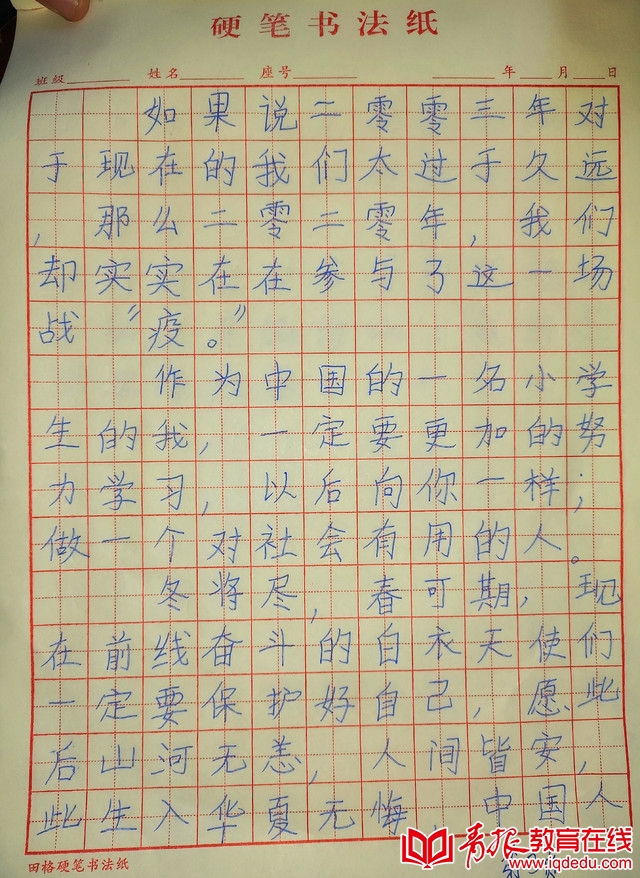 硬笔书法纸
班级 姓名 座号 年 月 日
如果说二零零三年对
于现在的我们太过于久远
，那么二零二零年，我们
却实实在在参与了这一场
战“疫。”
作为中国的一名小学
生的我，一定要更加的努
力学习，以后向你一样；
做一个对社会有用的人。
冬将尽，春可期，现
在前线奋斗的白衣天使们
一定要保护好自己，愿此
后山河无恙，人间皆安，
此生入华夏无悔，中国人
田格硬笔书法纸
青报教育在线
www.iqdedu.com